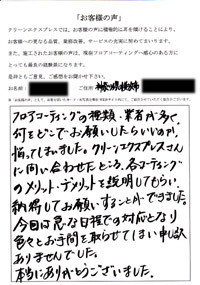 「お客様の声」
クリーンエクスプレスでは、お客様の声に積極的に耳を傾けることにより、
お客様への更なる品質、業務改善、サービスの充実に努めてまいります。
また、施工されたお客様の声は、現在フロアコーティングへ感心のある方に
とっても最良の経験談になります。
是非ともご意見、ご感想をお聞かせ下さい。
お名前：
ご住所：
フロアコーティングの種類・業者が多て、
何をどこでお願いしたらいいのか、
悩ってしまいました。クリーンエクスプレスさん
に問い合わせたところ、各コーティング
のメリット・デメリットを説明してもらい、
納得してお願いすることができました。
今回は急な日程での対応となり
色々とお手間を取らせてしまい申し訳
ありませんでした。
本当にありがとうございました。